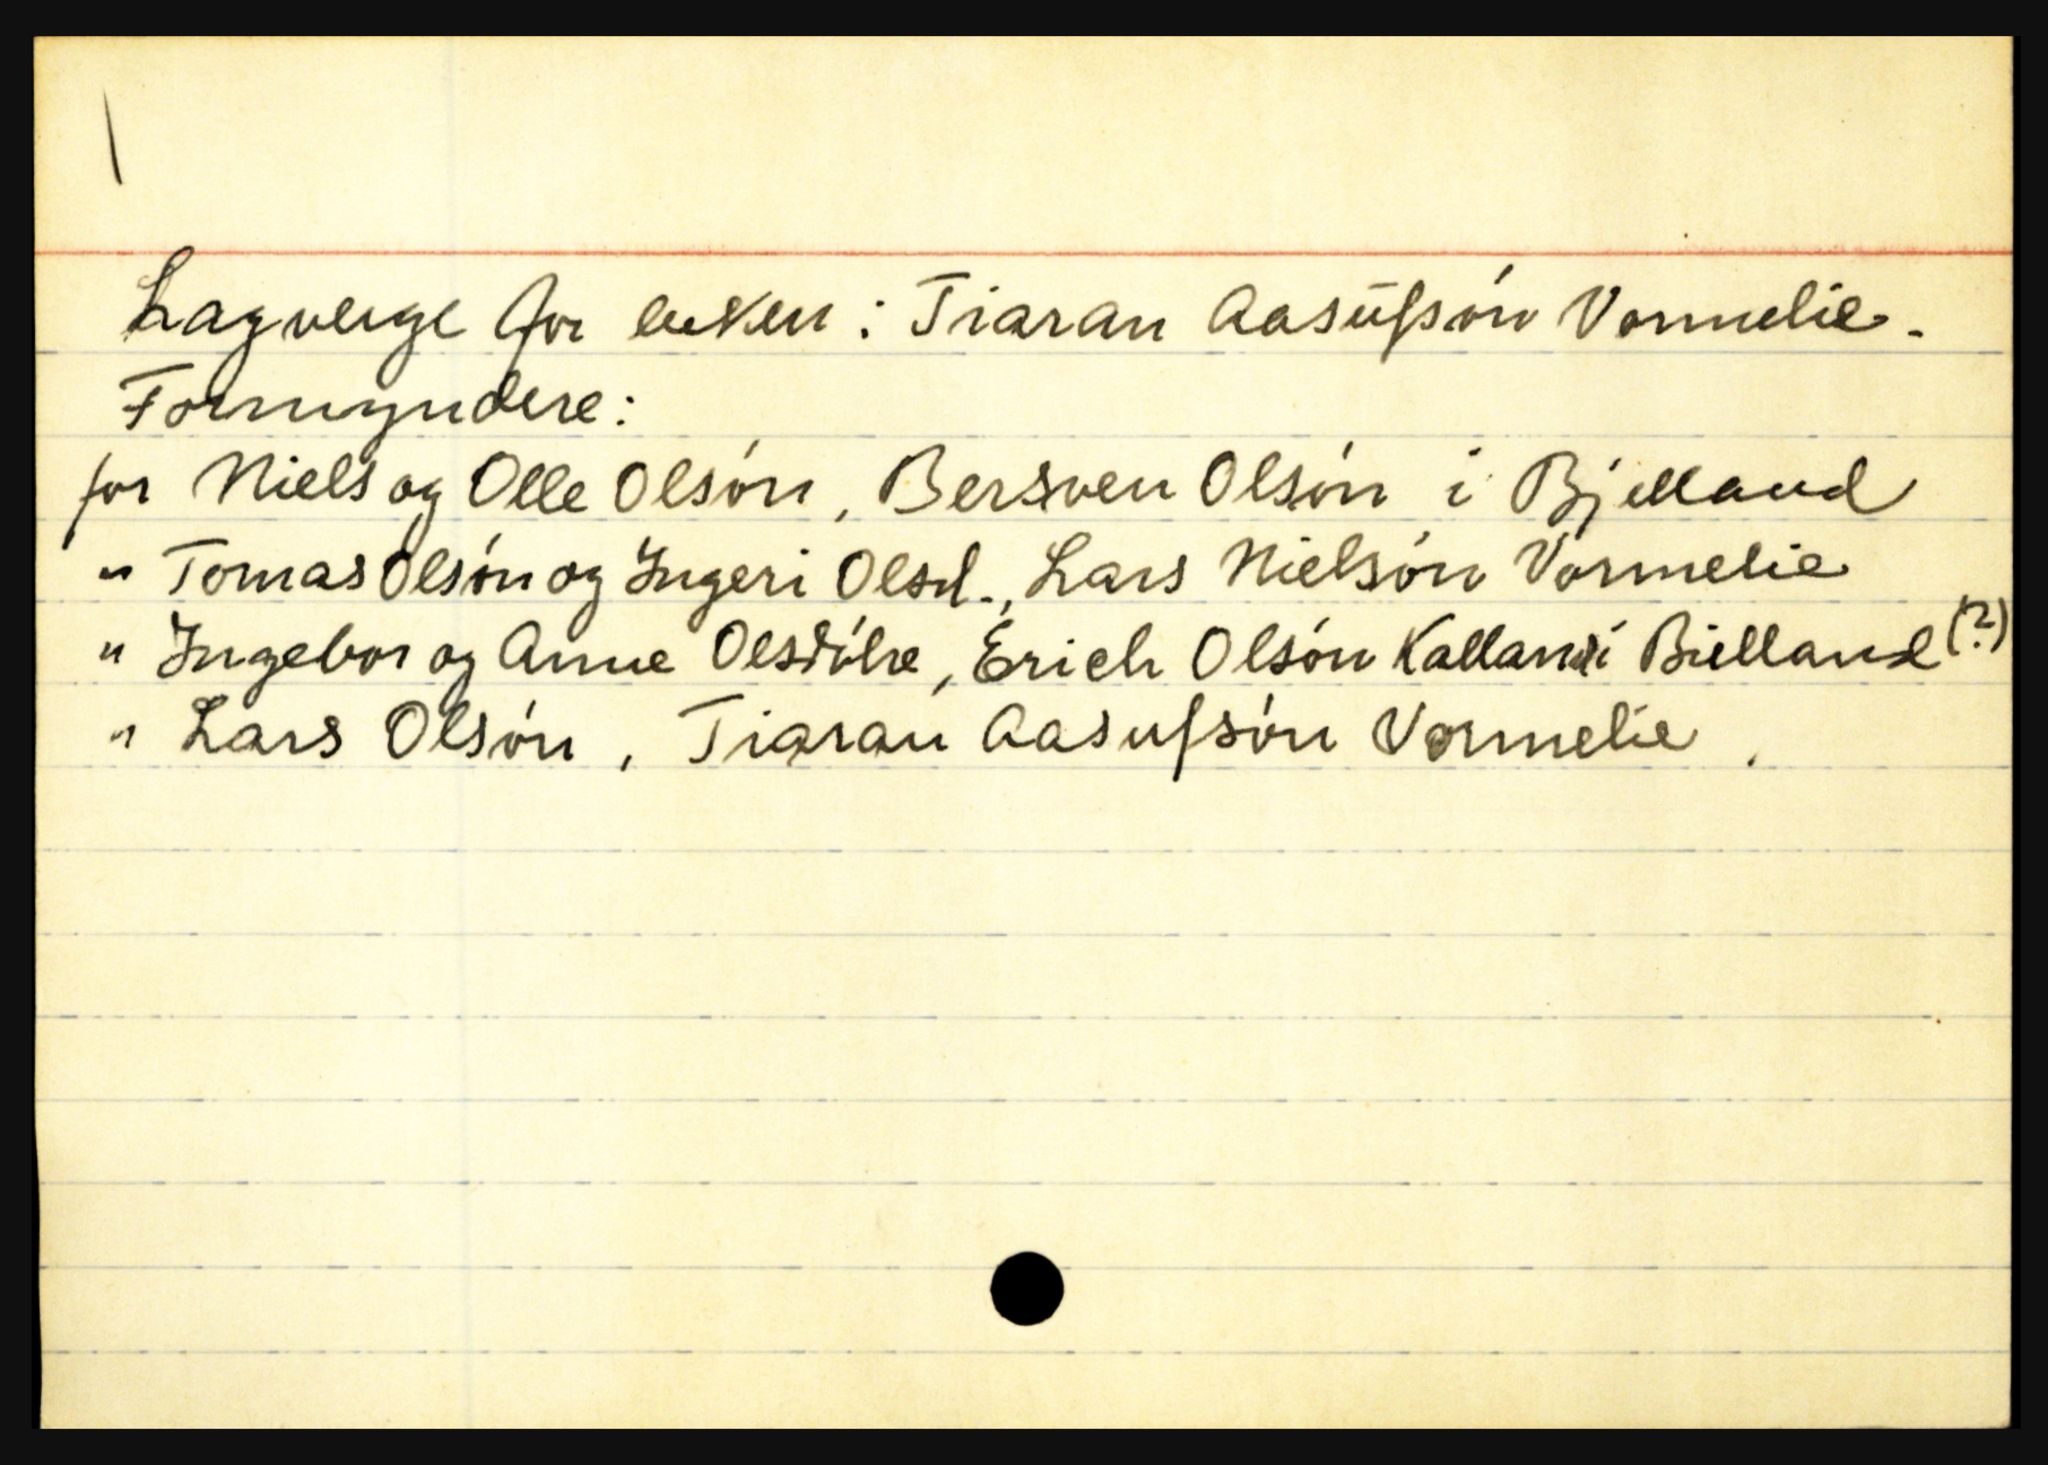 Lagverge for enken: Tiaran Aasúfsón Vormelie.
Formyndere:
for Niels og Olle Olsón, Bersven Olsón i Bjelland
" Tomas Olsón og Ingeri Olsd., Lars Nielsón Vormelie
" Ingebor og Anne Olsdótre, Erich Olsón Kalland i Bielland (?)
" Lars Olsón, Tiaran Aasufsón Vormelie.